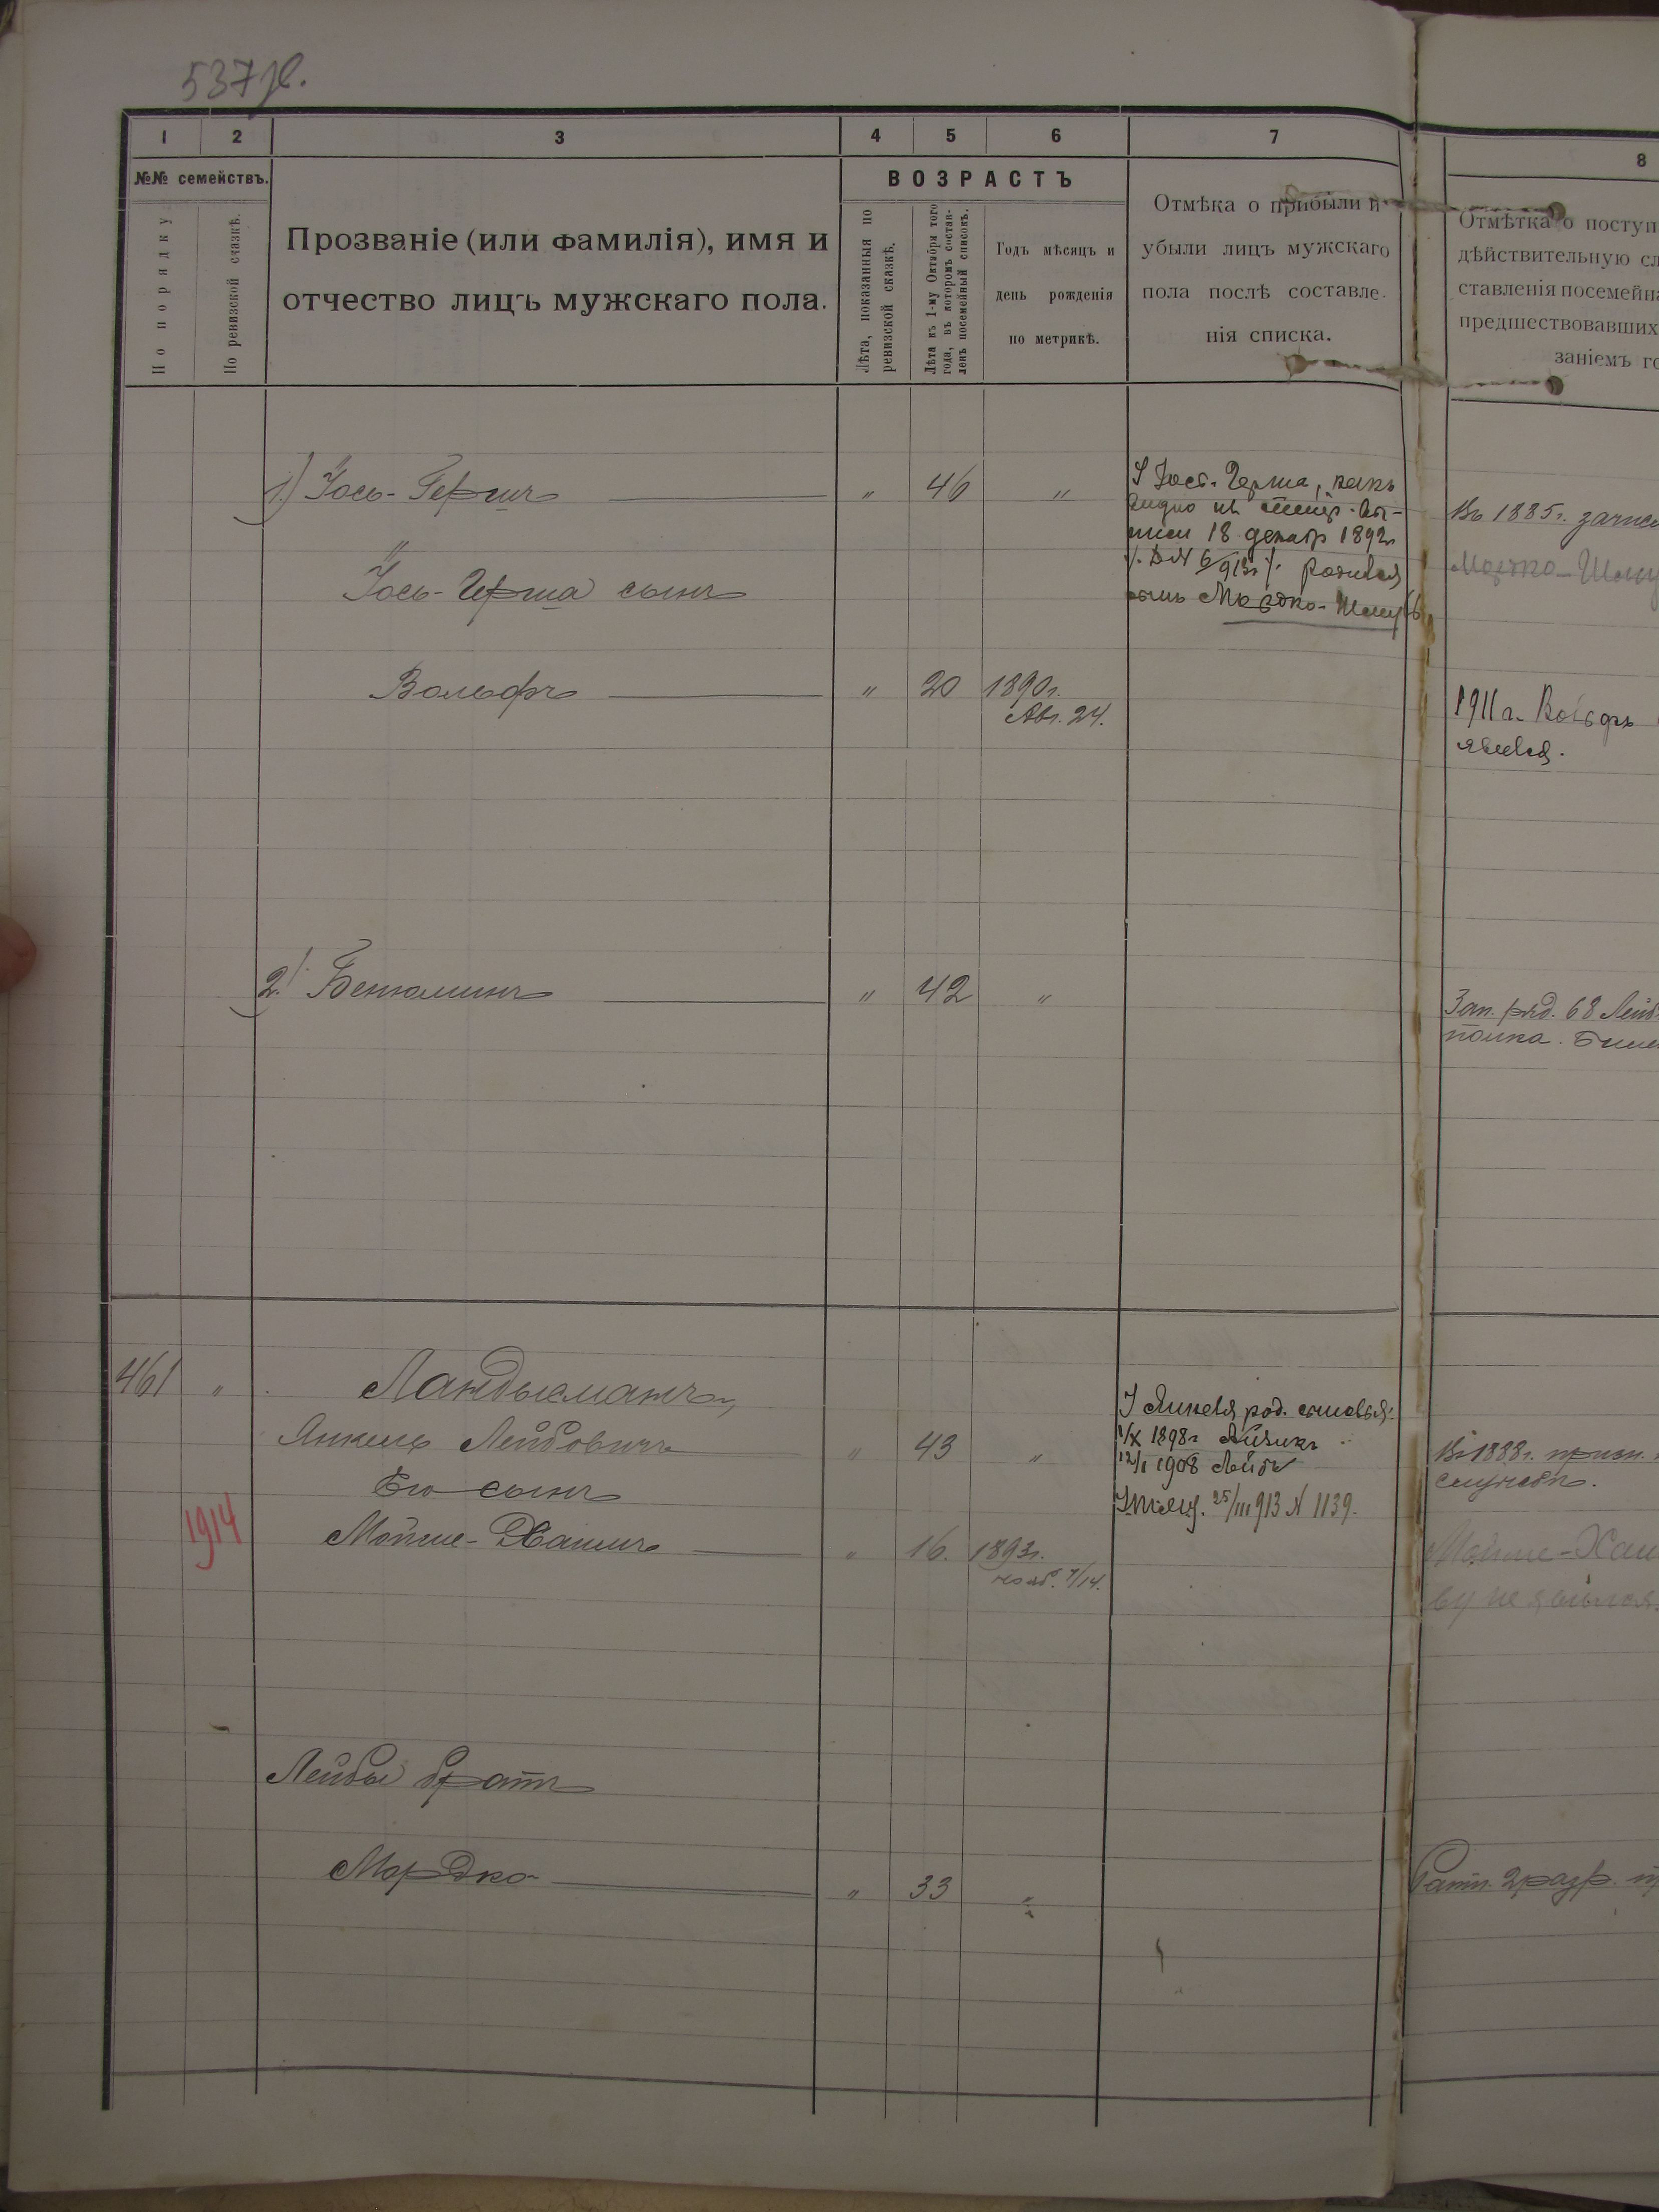 537 об.
1 2 3 4 5 6 7 8
№№ семействъ.
По порядку
По ревизской сказкѣ.
Прозваніе (или фамилія), имя и
отчество лицъ мужскаго пола.
ВОЗРАСТЪ
Лѣта, показанныя по
ревизской сказкѣ.
Лѣта къ 1-му Октября того
года, въ которомъ состав-
ленъ посемейный списокъ.
Годъ мѣсяцъ и
день рожденія
по метрикѣ.
Отмѣка о прибыли и
убыли лицъ мужскаго
пола послѣ составле-
нія списка.
Отмѣтка о поступ
дѣйствительную сл
ставленія посемейна
предшествовавших
заніемъ го
1) Іось-Гершъ " 46 "
У Іось-Герша, какъ
видно изъ метр. вы-
писи 18 декабр 1892г
/. В № 6/913г /. родился
сынъ Мордко-Шмуль
Въ 1885г. зачис
Мордко-Шму
Іось-Герша сынъ
Вольфъ " 20 1890г.
Авг. 24.
1911 г. Вольфъ
явился.
2) Бенюминъ " 42 "
Зап. ряд. 68 Лейб
полка. Биле
461 " Ландысманъ,
Янкель Лейбовичъ " 43 "
У Янкеля род. сыновья:
1/X 1898г Айзикъ
12/I 1908 Лейба
25/III 913 № 1139.
Въ 1888г. призн.
службѣ.
Его сынъ
1914
Мойше-Хаимъ " 16. 1893г.
нояб. 7/14.
Мойше-Хаи
ву не явился.
Лейбы братъ
Мордко " 33 "
Ратн. 2 разр.